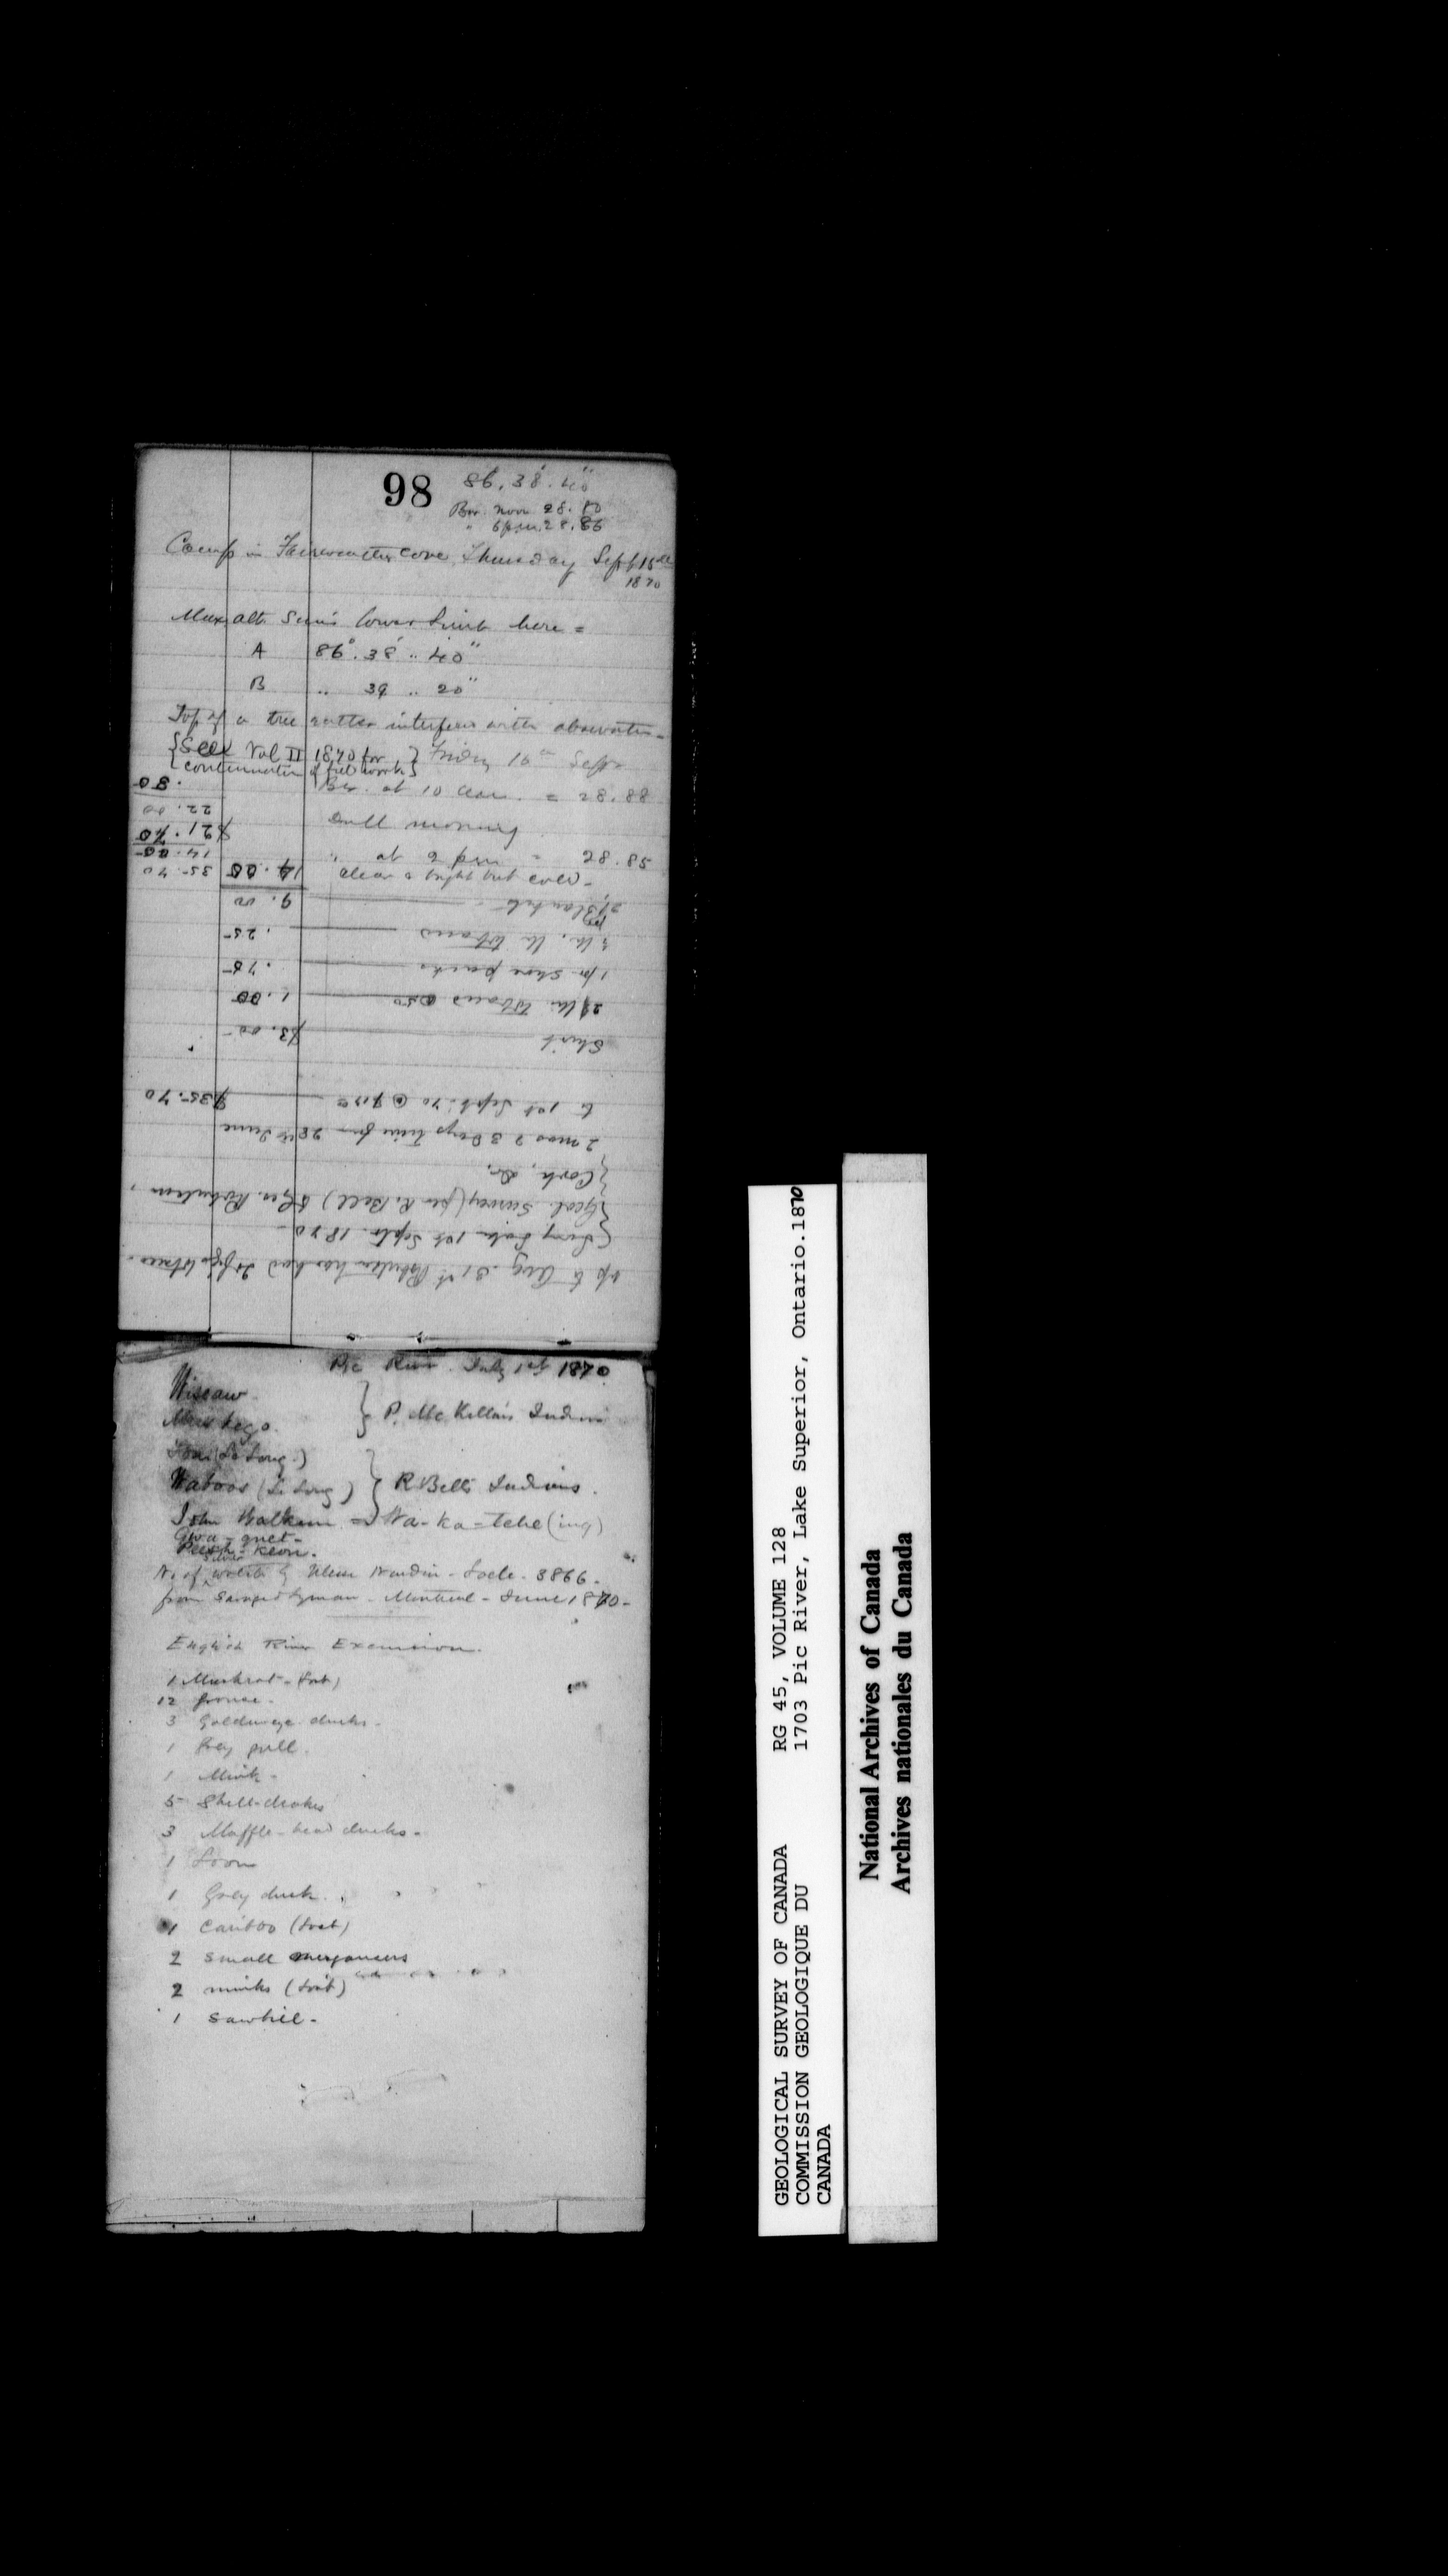 98
86°. 38'. 40"
Bar. noon 28. 80
" 6 p.m. 28. 86
Camp in Fairweather Cove, Thursday Sept 15th
1870
Max. alt. Sun's lower limb here =
A 86°. 38' .. 40"
B .. 39 .. 20"
Top of a tree rather interferes with observation -
{See Vol II 1870 for } Friday 16th Sept
{continuation of field work}
Bar. at 10 a.m. = 28. 88
Dull morning
" at 2 pm = 28. 85
Clear & bright but cold -
up to Aug. 31st Robertson has had
Long Lake 1st Sept. 1870
{Geol. Survey (per R. Bell) & Geo. Robertson,
{Cook, Dr.
2 mos & 3 days time from 28th June
to 1st Sept. 70 @ $35.70
Shirt $3. 00
2 lbs. Tobacco @ 50 1. 00
1 pr shoe packs . 75
½ lb. Tobacco . 25
2 Blankets 9. 00
14. 00
35. 70
14. 00
$21. 70
22. 00
. 30
Pic River. July 1st 1870
Wissaw
Muskego. } P. McKellar's Indians
(Le Long.)
Waboos (Le Long) } R. Bell's Indians.
John Walkem = Wa-ka-tche(ing)
Gwa-quet-
Peesh-keon.
No. of silver watch by Ulysse Nardin - Locle - 3866 -
from Savage & Lyman - Montreal - June 1870 -
English River Excursion.
1 Muskrat - (lost)
12 Grouse -
3 Golden-eye ducks -
1 Grey gull.
1 Mink -
5 Shell-drakes
3 Waffle-head ducks -
1 Loon
1 Grey duck.
1 Cariboo (lost)
2 small mergansers
2 minks (lost)
1 Sawbill -
GEOLOGICAL SURVEY OF CANADA RG 45, VOLUME 128
COMMISSION GEOLOGIQUE DU 1703 Pic River, Lake Superior, Ontario.1870
CANADA
National Archives of Canada
Archives nationales du Canada